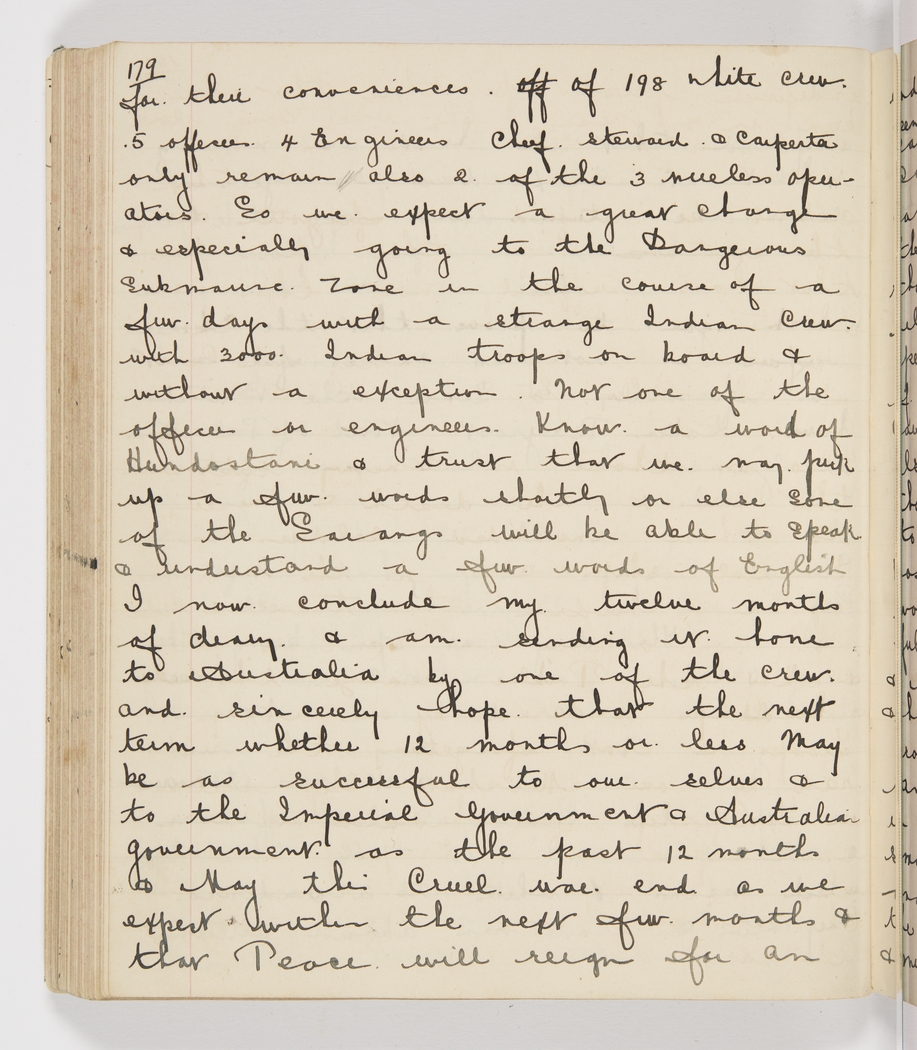 179
for their conveniences. off of 198 white crew.
.5 officers. 4 Engineers Cheef. steward. & Carperta
only remain // also 2. of the 3 wireless oper-
ators. So we. expect a great change
& especially going to the Dangerous
Submarine. Zone in the course of a
few. days with a strange Indian Crew.
with 3000. Indian troops on board &
without a exception. Not one of the
officers or engineers. Know. a word of
Hundostani & trust that we. may. pick
up a few. words shortly or else Some
of the Sarangs will be able to Speak
& understand a few. words of English
I now. conclude my. twelve months
of dairy. & am. sending it home
to Australia by one of the crew.
and. sincerely hope. that the next
term whether 12 months or. less May
be as successful to our. selves &
to the Imperial Government & Australian
government. as the past 12 months
& May this Cruel. war. end. as we
expect. within the next few. months &
that Peace. will reign for an